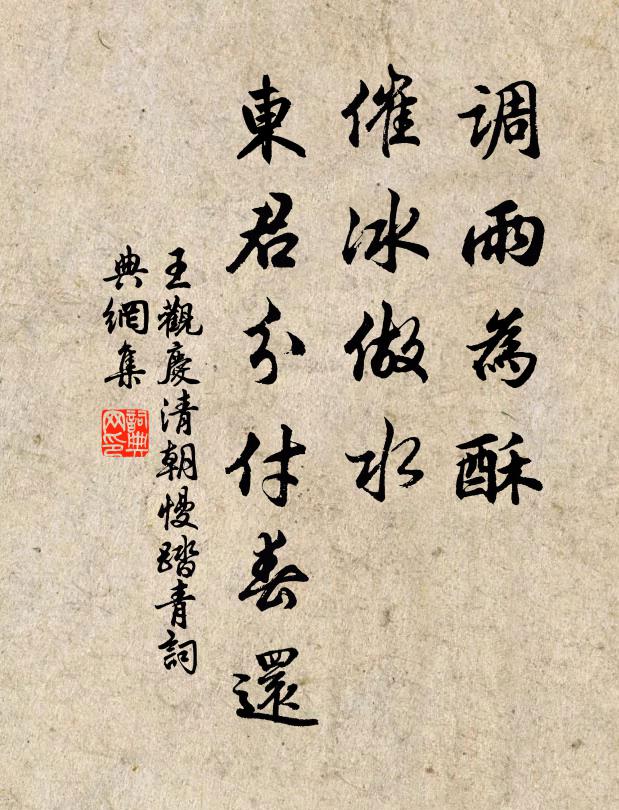 調雨為酥
催冰做水
東君分付春還
王觀慶清朝慢踏青詞
典網集
詞典網印